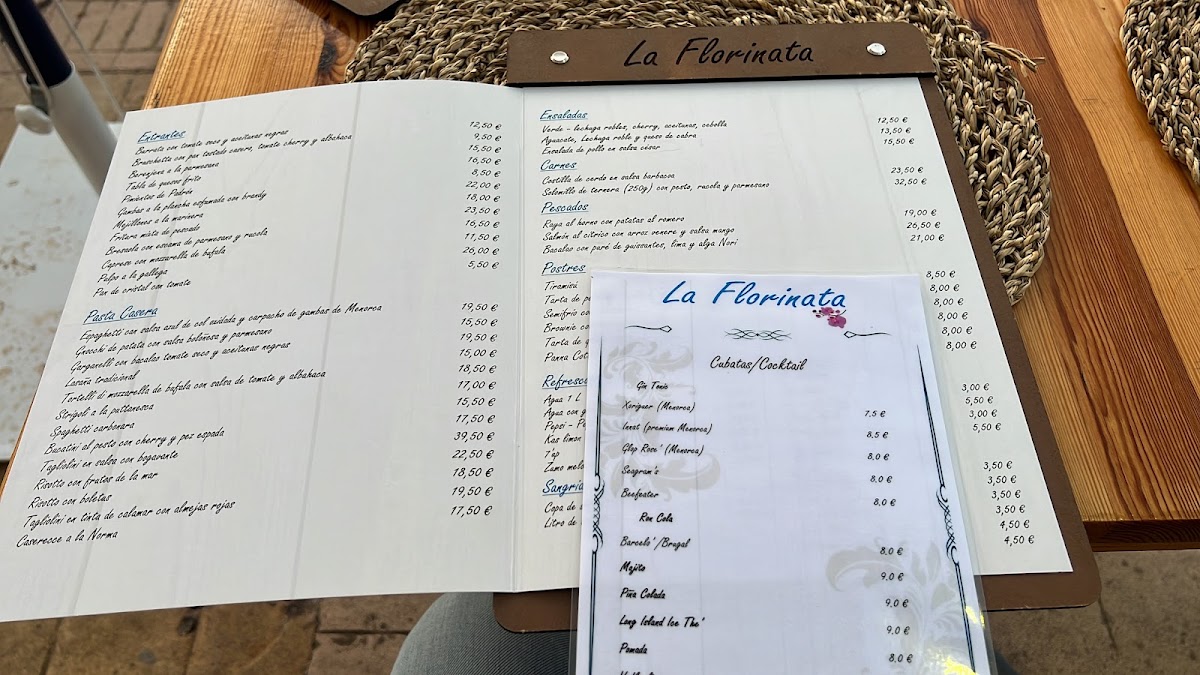 La Florinata
Entrantes
Burrata con tomate seco y aceitunas negras 12,50 €
Bruschetta con pan tostado casero, tomate cherry y albahaca 9,50 €
Berenjena a la parmesana 15,50 €
Tabla de quesos frito 16,50 €
Pimientos de Padrón 8,50 €
Gambas a la plancha esfumada con brandy 22,00 €
Mejillones a la marinera 18,00 €
Fritura mixta de pescado 23,50 €
Bresaola con escama de parmesano y rucola 16,50 €
Caprese con mozzarella de bufala 11,50 €
Pulpo a la gallega 26,00 €
Pan de cristal con tomate 5,50 €
Pasta Casera
Espaghetti con salsa azul de col cuidada y carpacho de gambas de Menorca 19,50 €
Gnocchi de patata con salsa boloñesa y parmesano 15,50 €
Garganelli con bacalao tomate seco y aceitunas negras 19,50 €
Lasaña tradicional 15,00 €
Tortelli di mozzarella de bufala con salsa de tomate y albahaca 18,50 €
Strigoli a la puttanesca 17,00 €
Spaghetti carbonara 15,50 €
Bucatini al pesto con cherry y pez espada 17,50 €
Tagliolini en salsa con bogavante 39,50 €
Risotto con frutos de la mar 22,50 €
Risotto con boletus 18,50 €
Tagliolini en tinta de calamar con almejas rojas 19,50 €
Caserecce a la Norma 17,50 €
Ensaladas
Verde - lechuga robles, cherry, aceitunas, cebolla 12,50 €
Aguacate, lechuga roble y queso de cabra 13,50 €
Ensalada de pollo en salsa césar 15,50 €
Carnes
Costilla de cerdo en salsa barbacoa 23,50 €
Solomillo de ternera (250g) con pesto, rucola y parmesano 32,50 €
Pescados
Raya al horno con patatas al romero 19,00 €
Salmón al citrico con arroz venere y salsa mango 26,50 €
Bacalao con puré de guissantes, lima y alga Nori 21,00 €
Postres
Tiramisú 8,50 €
Tarta de 8,00 €
Semifrío 8,00 €
Brownie 8,00 €
Tarta de 8,00 €
Panna Cot 8,00 €
Refresco
Agua 1 L 3,00 €
Agua con 5,50 €
Pepsi 3,00 €
Kas limon 5,50 €
7up 3,50 €
Zumo 3,50 €
3,50 €
3,50 €
Sangria
Copa de 4,50 €
Litro de 4,50 €
La Florinata
Cubatas/Cocktail
Gin Tonic
Xoriguer (Menorca) 7.5 €
Innat (premium Menorca) 8.5 €
Glop Rose' (Menorca) 8.0 €
Seagram's 8.0 €
Beefeater 8.0 €
Ron Cola
Barcelo'/Brugal 8.0 €
Mojito 9.0 €
Piña Colada 9.0 €
Long Island Ice The' 9.0 €
Pomada 8.0 €